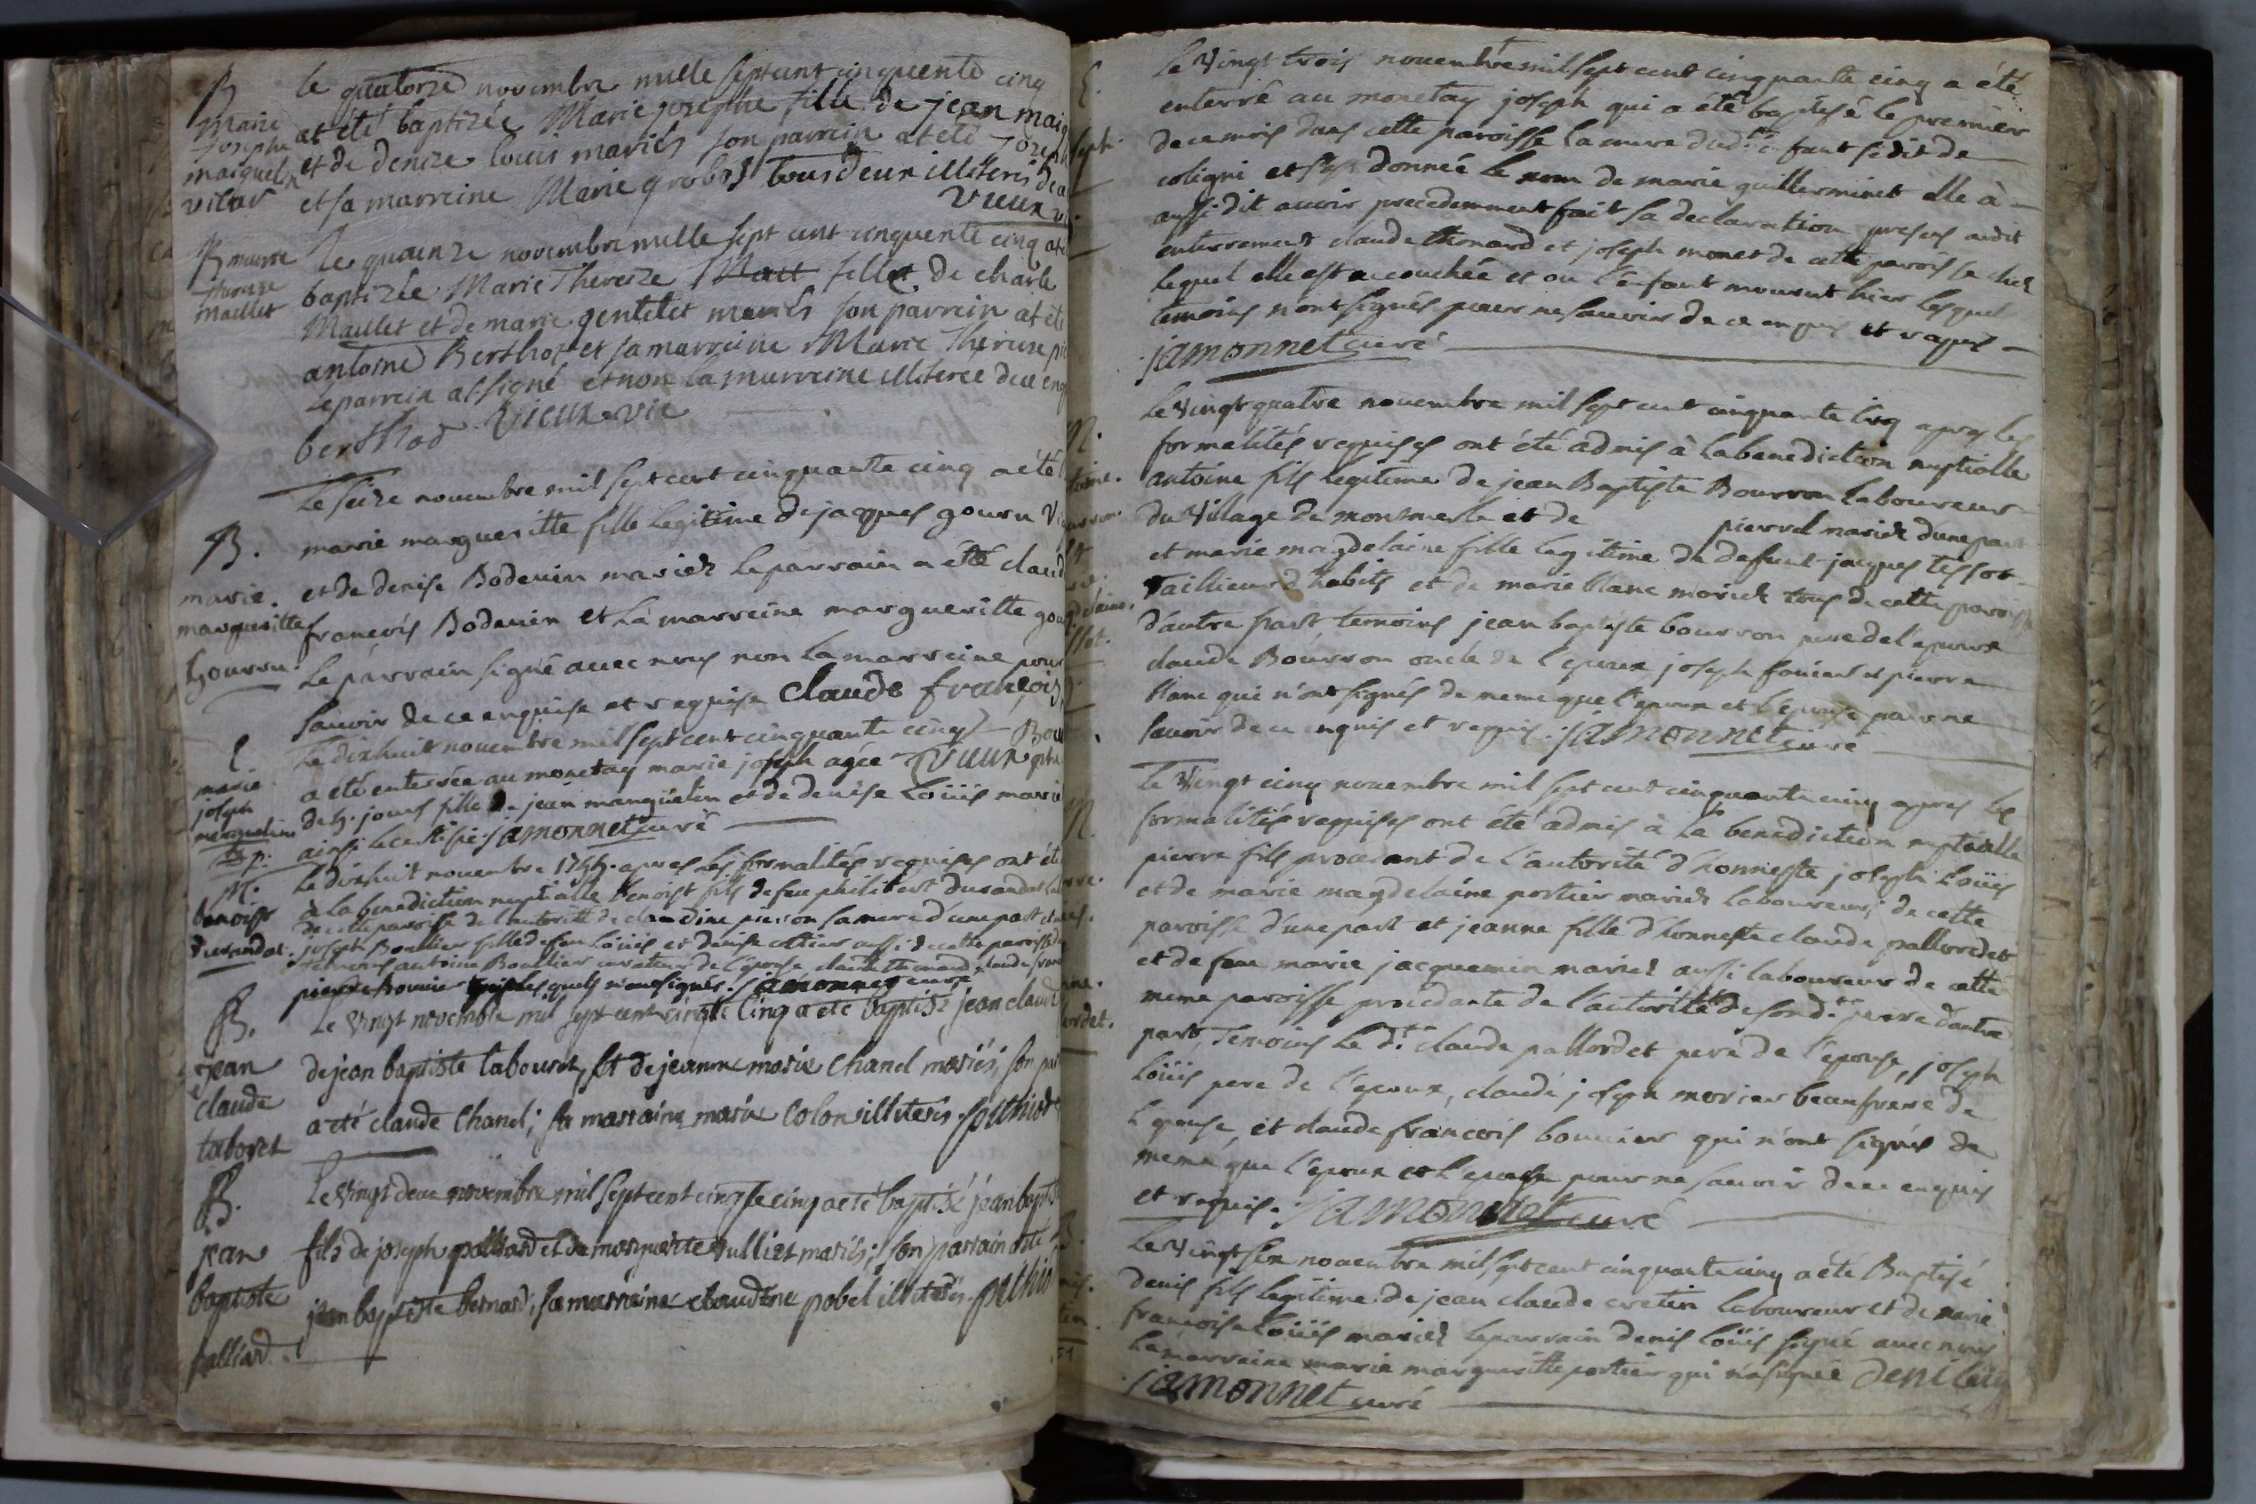 B
Marie
Josephe
le quatorze novembre mille septcent cinquente cinq
at été baptizée Marie josephe fille de jean
et de denize louis mariés son parrein at été
et sa marreine Marie grobost tous deux illiteris
vieux
B marie
Thereze
maillet
le quainze novembre mille sept cent cinquente cinq
baptizée Marie Thereize fille de charle
Maillet et de marie gentelet mariés son parrein at été
antoine Berthod et sa marreine Marie Thereze
le parrein at signé et non la marreine illiteree de ce
berthod vieux vic
B.
marie
marguerite
gourru
le seize novembre mil sept cent cinquante cinq a été
marie marguerite fille legitime de jaques gourru
et de denise Bodenin mariez le parrain a été
françois Bodenin et la marreine marguerite
le parrain signé avec nous non la marreine pour
savoir de ce enquise et requise Claude françois
E
marie
joseph
le dixhuit novembre mil sept cent cinquante cinq
a été enterrée au monetay marie joseph agée vieux
de 4. jours fille de jean manguelin et de denise Loüis
ainsi le certifie. jamonnet curé
M.
benoist
durandot
le dixhuit novembre 1755. apres les formalités requises ont été
à la benediction nuptialle Benoist fils de feu philibert durandot
de cette paroisse de l'autorité de claudine pierron sa mere d'une part
joseph Boullier fille de feu Loüis et denise aussi de cette paroisse
temoins antoine Boullier curateur de l'epouse claude
pierre Bonnier lesquels n'ont signés. jamonnet curé
B.
jean
claude
taboret
le vingt novembre mil sept cent cinqte cinq a été baptisé jean claude
de jean baptiste tabouret, et de jeanne marie Chanel mariés, son
a été claude Chanel; sa marraine marie Colon illiterés.
B.
jean
baptiste
palliard
le vingt deux novembre mil sept cent cinqte cinq a été baptisé jean
fils de joseph palliard et de marguerite vulliet mariés; son parrain
jean baptiste bernard, sa marraine claudine pobel illiterés.
le vingt trois novembre mil sept cent cinquante cinq a été
enterré au monetay joseph qui a été baptisé le premier
de ce mois dans cette paroisse la mere dudt enfant se dit de
coligni et s'est donnée le nom de marie guillerminet elle à
aussi dit avoir precedemment fait sa declaration presens audit
enterrement claude thenard et joseph monet de cette paroisse chez
lequel elle est accouchée et ou l'enfant mourut hier lesquels
temoins n'ont signés pour ne savoir de ce enquis et requis
jamonnet curé
le vingt quatre novembre mil sept cent cinquante cinq apres les
formalités requises ont été admis à la benediction nuptialle
antoine fils legitime de jean Baptiste Bourron laboureur
du village de monmerle et de pierrel mariez d'une part
et marie magdelaine fille legitime de defunt jacques tissot
taillieur d'habits et de marie blanc mariez tous de cette paroisse
d'autre part temoins jean baptiste bourron pere de l'epoux
claude Bourron oncle de l'epoux joseph et pierre
blanc qui n'ont signés de meme que l'epoux et l'epouse pour ne
savoir de ce enquis et requis. jamonnet curé
le vingt cinq novembre mil sept cent cinquante cinq apres les
formalités requises ont été admis à la benediction nuptialle
pierre fils procedant de l'autorité d'honneste joseph Loüis
et de marie magdelaine portier mariez laboureurs de cette
paroisse d'une part et jeanne fille d'honneste claude pallordet
et de feue marie jacquemin mariez aussi laboureur de cette
meme paroisse procedante de l'autorité de sond. pere d'autre
part, Temoins le dt. claude pallordet pere de l'epouse, joseph
Loüis pere de l'epoux, claude joseph mercier beaufrere de
l'epouse, et claude françois bouvier qui n'ont signés de
meme que l'epoux et l'epouse pour ne savoir de ce enquis
et requis. jamonnet curé
le vingt six novembre mil sept cent cinquante cinq a été Baptisé
denis fils legitime de jean claude cretin laboureur et de marie
françoise Loüis mariez le parrain denis Loüis signé avec nous
la marraine marie marguerite portier qui n'a signée
jamonnet curé